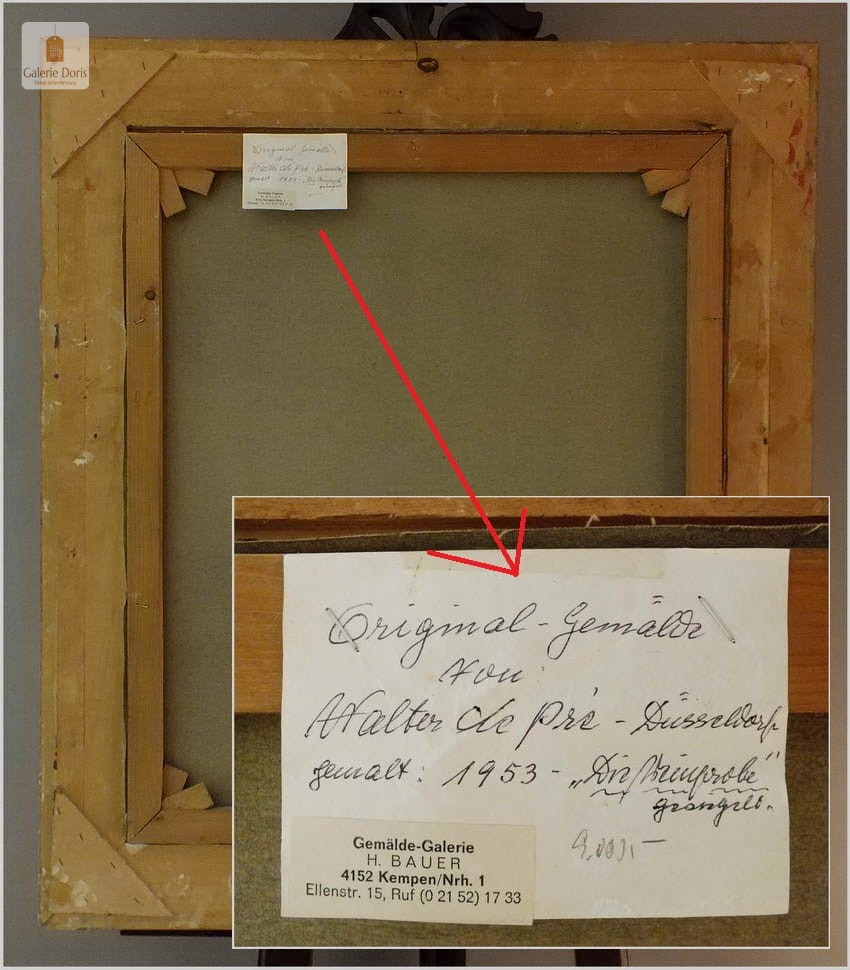 Galerie Doris
Original-Gemälde
von:
Walter de Pré - Düsseldorf
gemalt: 1953 - „Die Weinprobe"
Gemälde-Galerie
H. BAUER
4152 Kempen/Nrh. 1
Ellenstr. 15, Ruf (0 21 52) 17 33